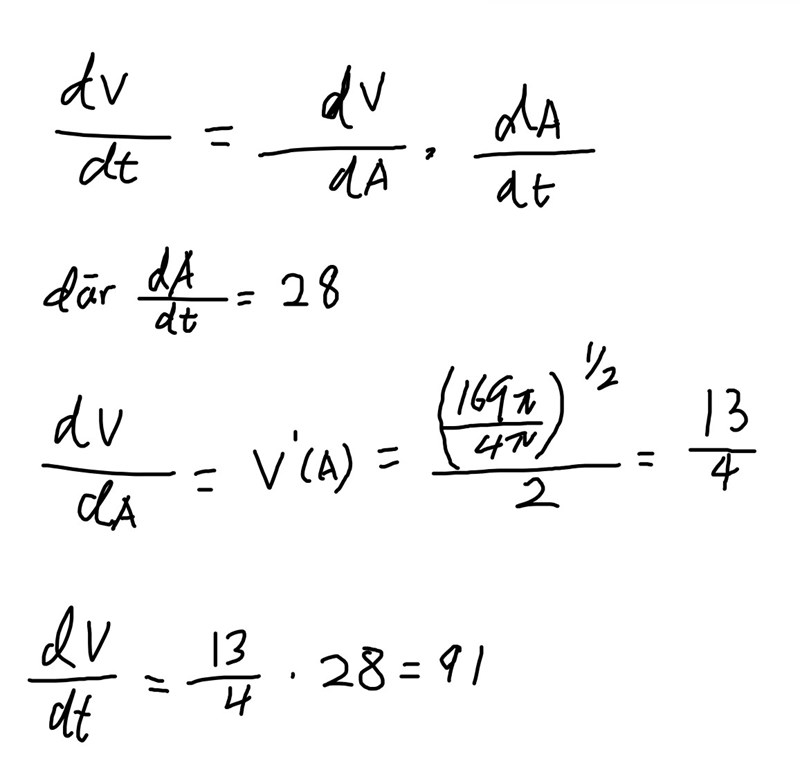 dV/dt = dV/dA · dA/dt
där dA/dt = 28
dV/dA = V'(A) = (169π/4π)^1/2 / 2 = 13/4
dV/dt = 13/4 · 28 = 91